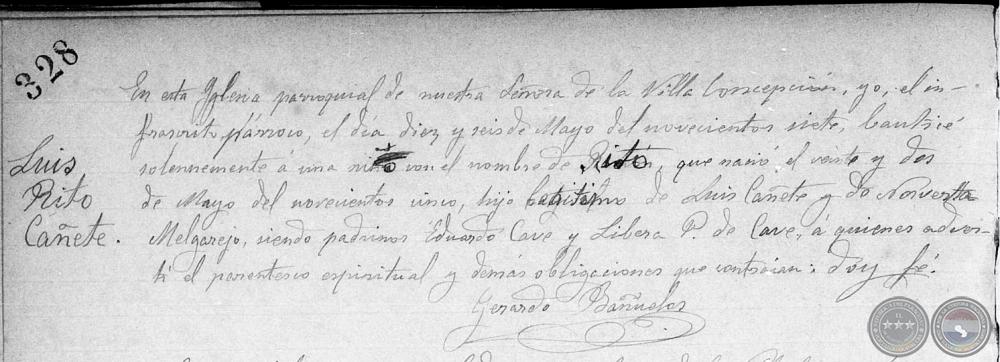 328
En esta Yglesia parroquial de nuestra Señora de la Villa Concepción, yo, el in-
frascrito párroco, el día diez y seis de Mayo del novecientos siete, bauticé
solemnemente á una niño con el nombre de Rito, que nació el veinte y dos
de Mayo del novecientos cinco, hijo legitimo de Luis Cañete y do Norverta
Melgarejo, siendo padrinos Eduardo Cave y Libera P. de Cave, á quienes adver-
tí el parentesco espiritual y demás obligaciones que contraían: doy fé.
Gerardo Bañuelos
Luis
Rito
Cañete.